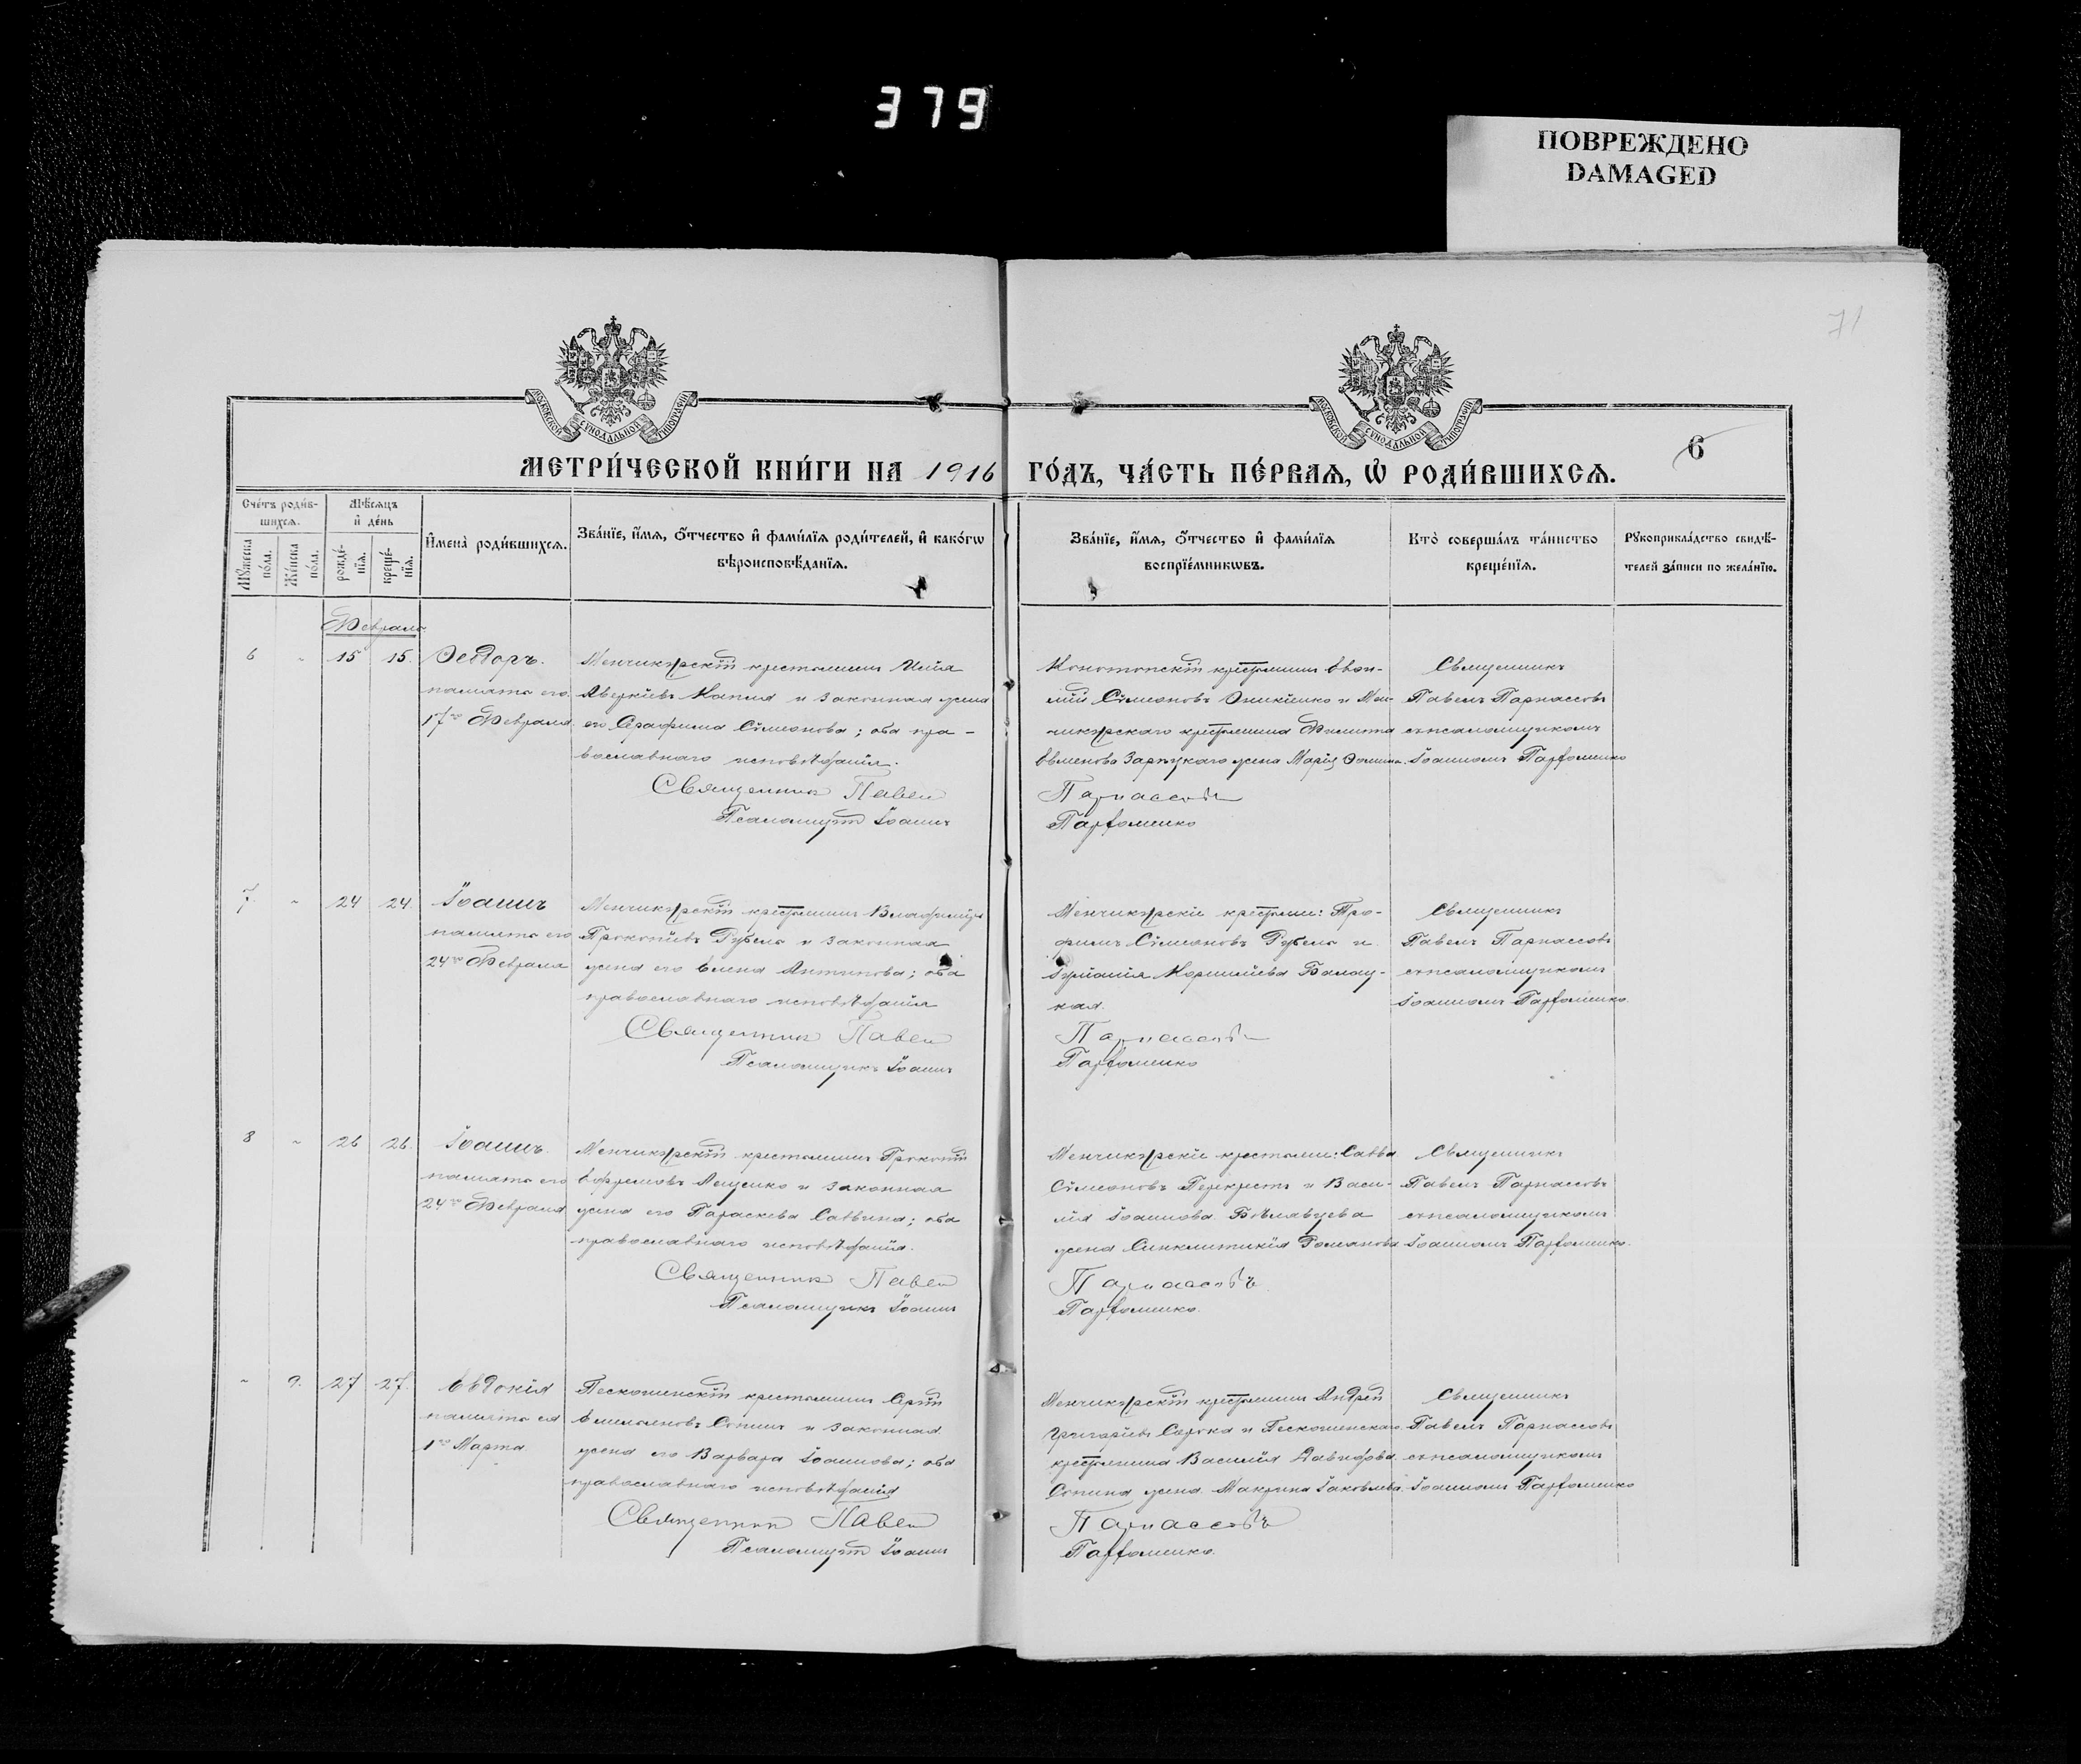 379
ПОВРЕЖДЕНО
DAMAGED
71
МОСКОВСКОЙ СѴНОДАЛЬНОЙ ТИПОГРАФІИ
МОСКОВСКОЙ СѴНОДАЛЬНОЙ ТИПОГРАФІИ
6
МЕТРИ́ЧЕСКОЙ КНИ́ГИ НА 1916 ГО́ДЪ, ЧА́СТЬ ПЕ́РВАѦ, Ѡ҆ РОДИ́ВШИХСѦ.
Сче́тъ роди́в-
шихсѧ.
Мѣ́сѧцъ
и҆ де́нь
Мꙋ́жеска
по́ла.
Же́нска
по́ла.
рожде́-
нїѧ.
креще́-
нїѧ.
И҆мена̀ роди́вшихсѧ.
Зва́нїе, и҆́мѧ, ѻ҆́тчество и҆ фами́лїѧ роди́телей, и҆ како́гѡ
вѣроисповѣ́данїѧ.
Зва́нїе, и҆́мѧ, ѻ҆́тчество и҆ фами́лїѧ
воспрїе́мникѡвъ.
Кто̀ соверша́лъ та́инство
креще́нїѧ.
Рꙋкоприкла́дство свидѣ́-
телей за́писи по жела́нїю.
Февраль
6 " 15 15. Ѳеодоръ.
память его
17го Февраля.
Менчикурскій крестьянинъ Илія
Аверкіевъ Капля и законная жена
его Серафима Сѵмеонова; оба пра-
вославнаго исповѣданія.
Священникъ Павелъ
Псаломщикъ Іоаннъ
Конотопскій крестьянинъ
Сѵмеоновъ и Мен-
чикурскаго крестьянина Филиппа
жена Марія
Парнассовъ
Парфоменко
Священникъ
Павелъ Парнассовъ
съ псаломщикомъ
Іоанномъ Парфоменко
7. " 24 24. Іоаннъ
память его
24го Февраля
Менчикурскій крестьянинъ Владиміръ
Прокопіевъ Рубель и законная
жена его Елена Антипова; оба
православнаго исповѣданія
Священникъ Павелъ
Псаломщикъ Іоаннъ
Менчикурскіе крестьяне: Тро-
фимъ Сѵмеоновъ Рубель и
Іуліанія Корниліева
кая.
Парнассовъ
Парфоменко
Священникъ
Павелъ Парнассовъ
съ псаломщикомъ
Іоанномъ Парфоменко.
8 " 26 26. Іоаннъ.
память его
24го Февраля
Менчикурскій крестьянинъ Прокопій
Ефремовъ Лещенко и законная
жена его Параскева Саввина; оба
православнаго исповѣданія.
Священникъ Павелъ
Псаломщикъ Іоаннъ
Менчикурскіе крестьяне: Савва
Сѵмеоновъ Перекрестъ и Васи-
лія Іоаннова
жена Синклитикія Романова
Парнассовъ
Парфоменко.
Священникъ
Павелъ Парнассовъ
съ псаломщикомъ
Іоанномъ Парфоменко.
" 9. 27 27. Евдокія
память ея
1го Марта
крестьянинъ Сергій
Емельяновъ Сопинъ и законная
жена его Варвара Іоаннова; оба
православнаго исповѣданія
Священникъ Павелъ
Псаломщикъ Іоаннъ
Менчикурскій крестьянинъ Андрей
Григоріевъ Сорока и
крестьянина Василія Давидова
Сопина жена Макрина Іаковлева.
Парнассовъ
Парфоменко.
Священникъ
Павелъ Парнассовъ
съ псаломщикомъ
Іоанномъ Парфоменко